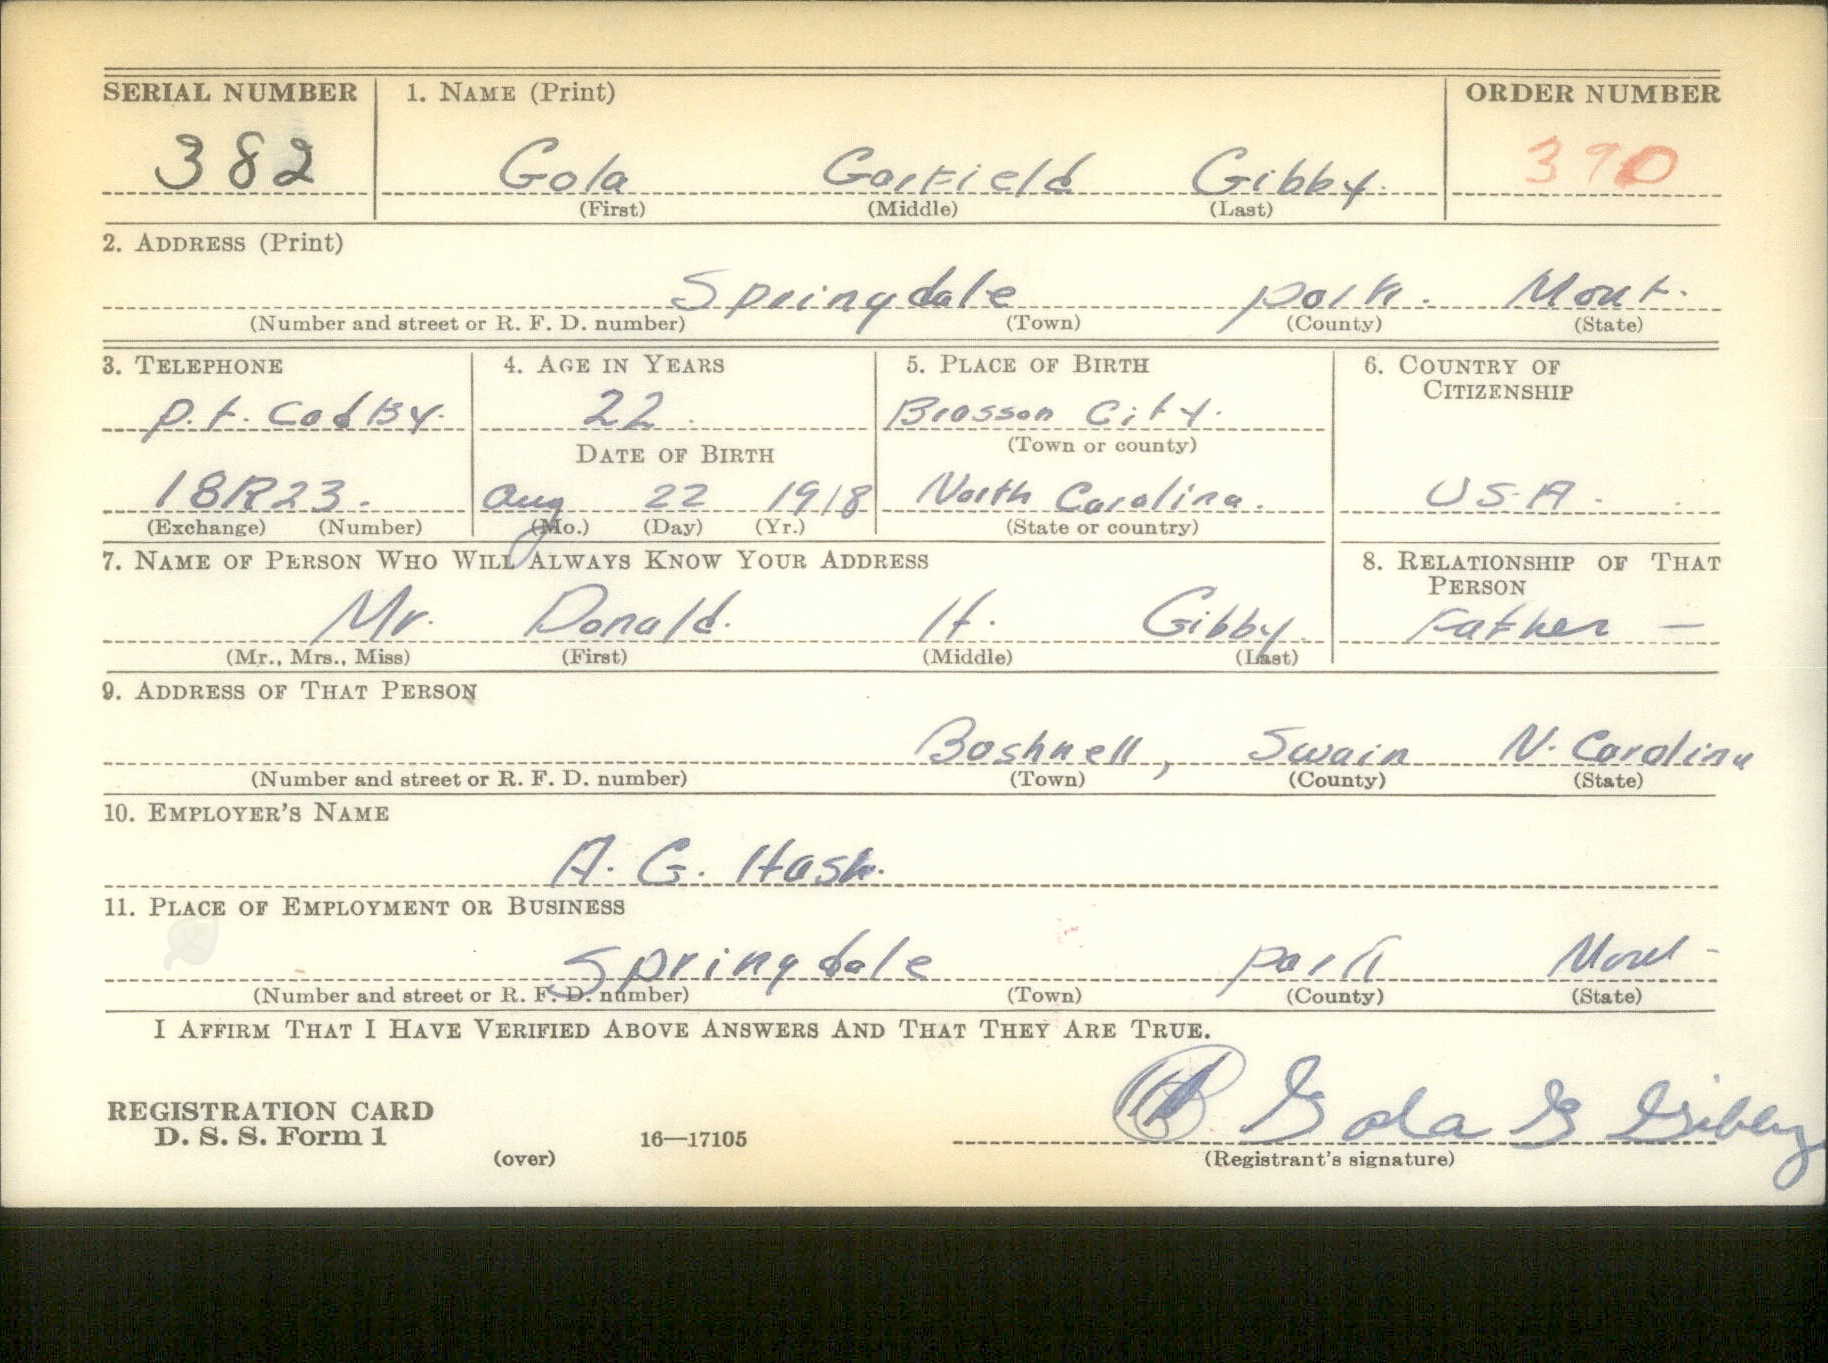 SERIAL NUMBER 1. NAME (Print) ORDER NUMBER
382 Gola Garfield Gibby. 390
(First) (Middle) (Last)
2. ADDRESS (Print)
Springdale park. Mont.
(Number and street or R. F. D. number) (Town) (County) (State)
3. TELEPHONE 4. AGE IN YEARS 5. PLACE OF BIRTH 6. COUNTRY OF CITIZENSHIP
22. City.
(Town or county)
DATE OF BIRTH
18R23. Aug 22 1918 North Carolina. USA.
(Exchange) (Number) (Mo.) (Day) (Yr.) (State or country)
7. NAME OF PERSON WHO WILL ALWAYS KNOW YOUR ADDRESS 8. RELATIONSHIP OF THAT PERSON
Mr. Donald. H. Gibby. Father —
(Mr., Mrs., Miss) (First) (Middle) (Last)
9. ADDRESS OF THAT PERSON
Boshnell, Swain N. Carolina
(Number and street or R. F. D. number) (Town) (County) (State)
10. EMPLOYER'S NAME
A. G. Hash.
11. PLACE OF EMPLOYMENT OR BUSINESS
Springdale park Mont
(Number and street or R. F. D. number) (Town) (County) (State)
I AFFIRM THAT I HAVE VERIFIED ABOVE ANSWERS AND THAT THEY ARE TRUE.
REGISTRATION CARD
D. S. S. Form 1 16—17105 Gola G Gibby
(over) (Registrant's signature)